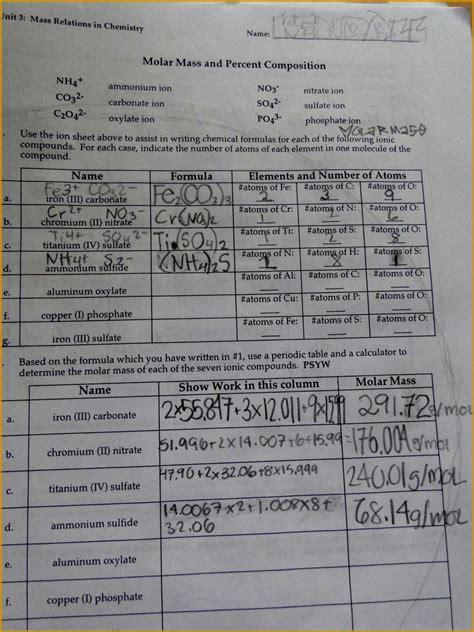 Unit 3: Mass Relations in Chemistry
Name:
Molar Mass and Percent Composition
NH4+ ammonium ion NO3- nitrate ion
CO3 2- carbonate ion SO4 2- sulfate ion
C2O4 2- oxylate ion PO4 3- phosphate ion
MOLAR MASS
Use the ion sheet above to assist in writing chemical formulas for each of the following ionic
compounds. For each case, indicate the number of atoms of each element in one molecule of the
compound.
Name Formula Elements and Number of Atoms
Fe3+ CO3 2- Fe2(CO3)3 #atoms of Fe: #atoms of C: #atoms of O:
a. iron (III) carbonate 2 3 9
Cr2+ NO3- #atoms of Cr: #atoms of N: #atoms of O:
b. chromium (II) nitrate 1 2 6
Ti4+ SO4 2- Ti(SO4)2 #atoms of Ti: #atoms of S: #atoms of O:
c. titanium (IV) sulfate 1 2 8
NH4+ S2- (NH4)2S #atoms of N: #atoms of H: #atoms of S:
d. ammonium sulfide 2 8 1
#atoms of Al: #atoms of C: #atoms of O:
e. aluminum oxylate
#atoms of Cu: #atoms of P: #atoms of O:
f. copper (I) phosphate
#atoms of Fe: #atoms of S: #atoms of O:
g. iron (III) sulfate
Based on the formula which you have written in #1, use a periodic table and a calculator to
determine the molar mass of each of the seven ionic compounds. PSYW
Name Show Work in this column Molar Mass
a. iron (III) carbonate 2x55.847+3x12.011+9x15.99 291.72g/mol
b. chromium (II) nitrate 51.996+2x14.007+6+15.99= 176.004g/mol
c. titanium (IV) sulfate 47.90+2x32.06+8x15.999 240.01g/mol
d. ammonium sulfide 14.0067x2+1.008x8+ 68.14g/mol
32.06
e. aluminum oxylate
f. copper (I) phosphate